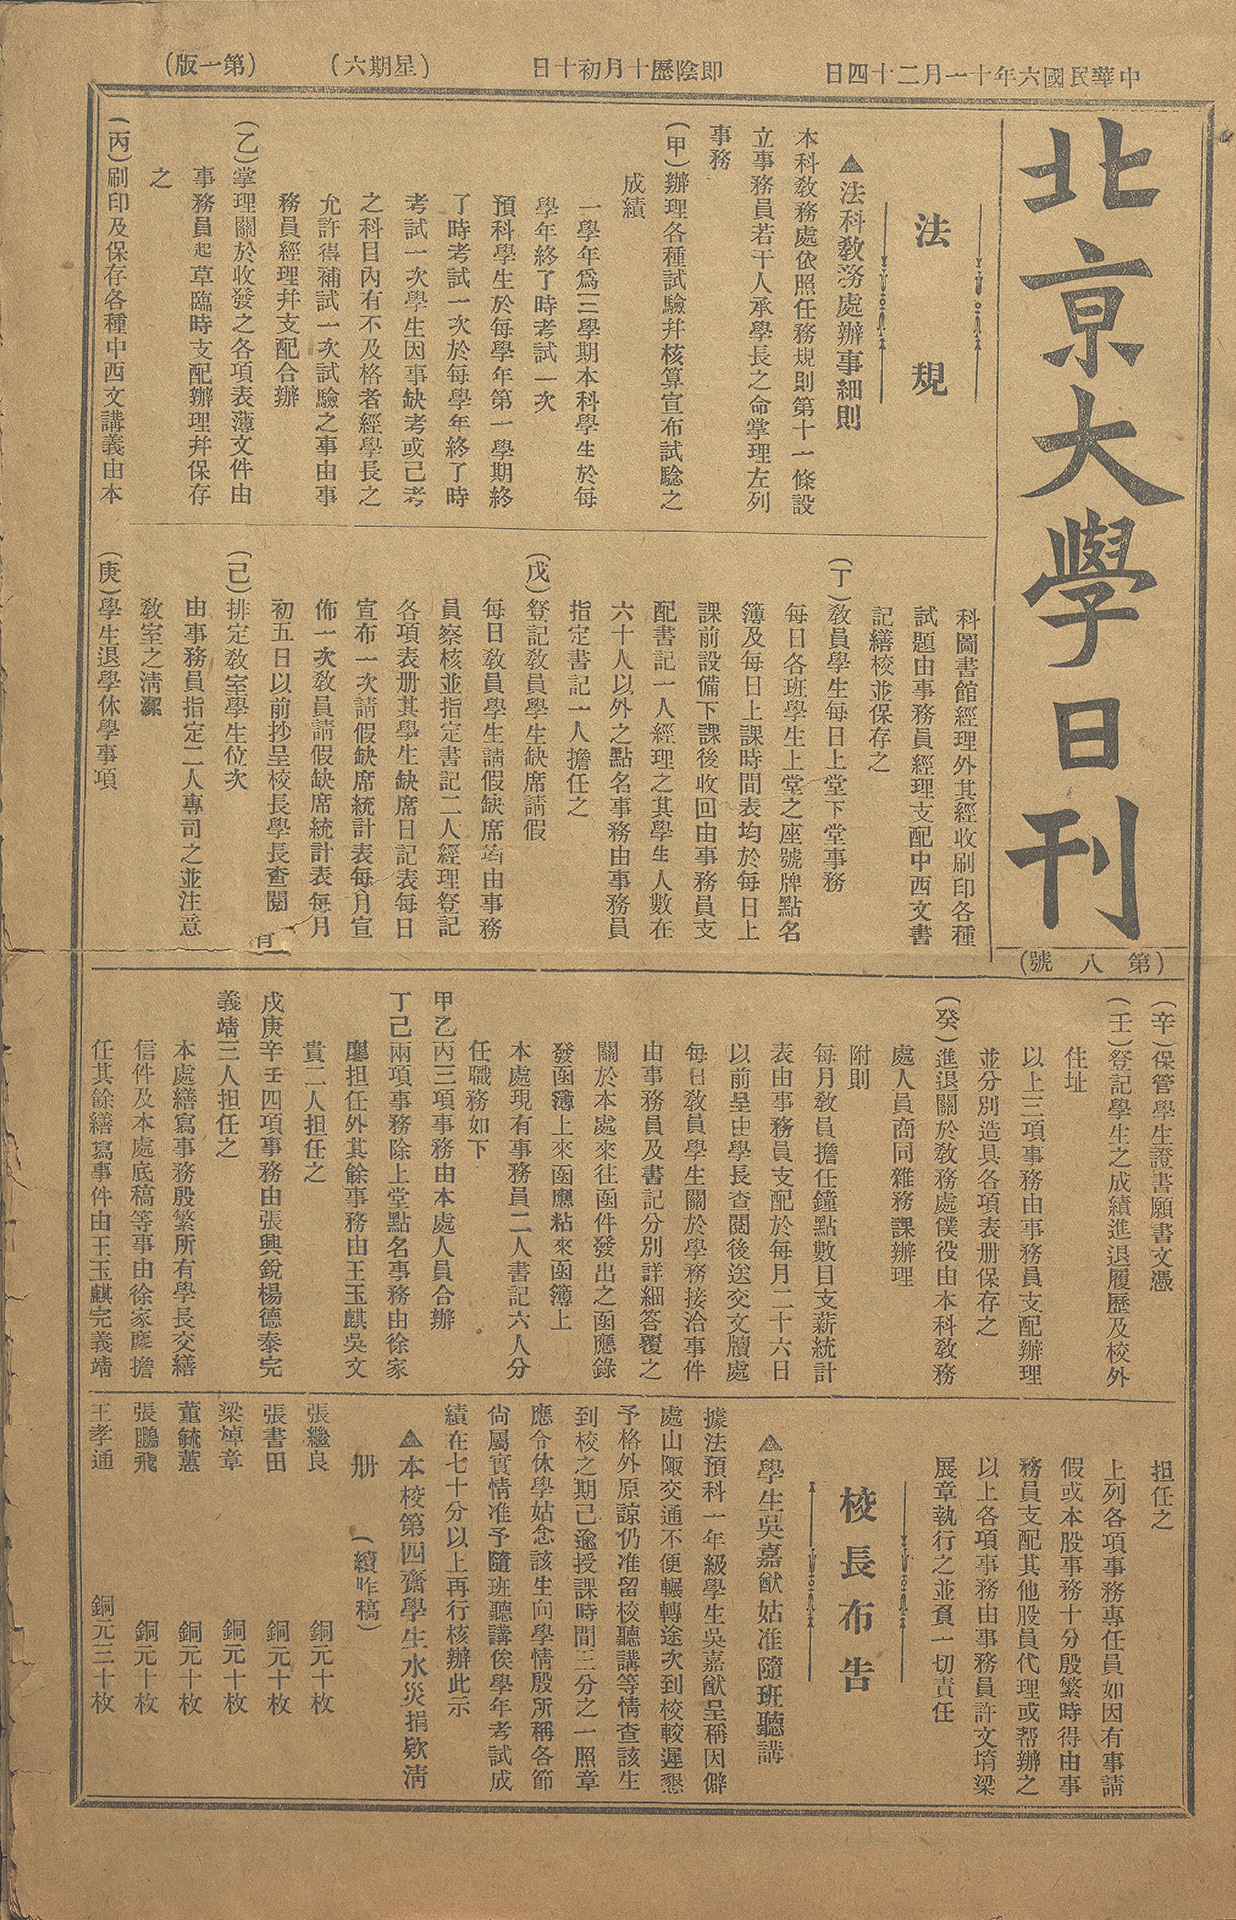 中華民國六年十一月二十四日
即陰歷十月初十日
(星期六)
(第一版)
北京大學日刊
(第八號)
法規
▲法科教務處辦事細則
本科教務處依照任務規則第十一條設
立事務員若干人承學長之命掌理左列
事務
(甲)辦理各種試驗幷核算宣布試驗之
成績
一學年爲三學期本科學生於每
學年終了時考試一次
預科學生於每學年第一學期終
了時考試一次於每學年終了時
考試一次學生因事缺考或己考
之科目內有不及格者經學長之
允許得補試一次試驗之事由事
務員經理幷支配合辦
(乙)掌理關於收發之各項表薄文件由
事務員起草臨時支配辦理幷保存
之
(丙)刷印及保存各種中西文講義由本
科圖書館經理外其經收刷印各種
試題由事務員經理支配中西文書
記繕校並保存之
(丁)教員學生每日上堂下堂事務
每日各班學生上堂之座號牌點名
簿及每日上課時間表均於每日上
課前設備下課後收回由事務員支
配書記一人經理之其學生人數在
六十人以外之點名事務由事務員
指定書記一人擔任之
(戊)登記教員學生缺席請假
每日教員學生請假缺席均由事務
員察核並指定書記二人經理登記
各項表册其學生缺席日記表每日
宣布一次請假缺席統計表每月宣
佈一次教員請假缺席統計表每月
初五日以前抄呈校長學長查閱
(己)排定教室學生位次
由事務員指定二人專司之並注意
教室之淸潔
(庚)學生退學休學事項
(辛)保管學生證書願書文憑
(壬)登記學生之成績進退履歷及校外
住址
以上三項事務由事務員支配辦理
並分別造具各項表册保存之
(癸)進退關於教務處僕役由本科教務
處人員商同雜務課辦理
附則
每月教員擔任鐘點數目支薪統計
表由事務員支配於每月二十六日
以前呈由學長查閱後送交文牘處
每日教員學生關於學務接洽事件
由事務員及書記分別詳細答覆之
關於本處來往函件發出之函應錄
發函簿上來函應粘來函簿上
本處現有事務員二人書記六人分
任職務如下
甲乙丙三項事務由本處人員合辦
丁己兩項事務除上堂點名事務由徐家
麈担任外其餘事務由王玉麒吳文
貴二人担任之
戊庚辛壬四項事務由張興銳楊德泰完
義靖三人担任之
本處繕寫事務殷繁所有學長交繕
信件及本處底稿等事由徐家麈擔
任其餘繕寫事件由王玉麒完義靖
担任之
上列各項事務專任員如因有事請
假或本股事務十分殷繁時得由事
務員支配其他股員代理或帮辦之
以上各項事務由事務員許文堉梁
展章執行之並負一切責任
校長布告
▲學生吳嘉猷姑准隨班聽講
據法預科一年級學生吳嘉猷呈稱因僻
處山陬交通不便輾轉途次到校較遲懇
予格外原諒仍准留校聽講等情查該生
到校之期己逾授課時間三分之一照章
應令休學姑念該生向學情殷所稱各節
尙屬實情准予隨班聽講俟學年考試成
績在七十分以上再行核辦此示
▲本校第四齋學生水災捐欵淸
册 (續昨稿)
張繼良 銅元十枚
張書田 銅元十枚
梁埻章 銅元十枚
董毓蕙 銅元十枚
張鵬飛 銅元十枚
王孝通 銅元三十枚